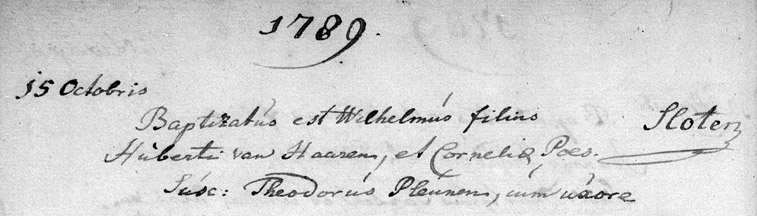 1789.
15 Octobris
Baptizatus est Wilhelmus filius Sloten
Huberti van Haaren, et Cornelia Poes.
Susc: Theodorus Pleunen, cum uxore